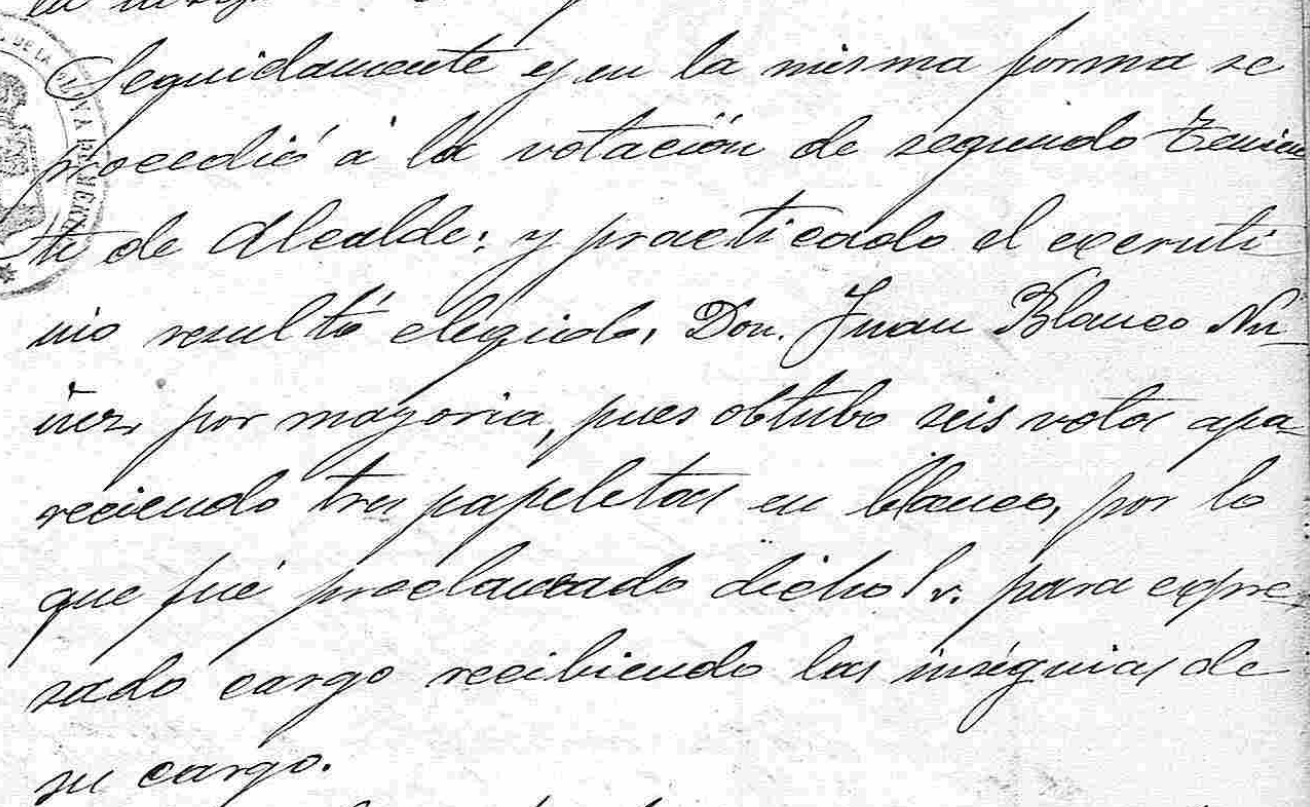 Seguidamente y en la misma forma se
procedió á la votación de segundo Tenien
te de Alcalde; y practicado el excruti
nio resultó elegido, Don. Juan Blanco Nu-
ñez, por mayoria, pues obtubo seis votos apa-
reciendo tres papeletas en blanco, por lo
que fué proclamado dicho Sr. para expre-
sado cargo recibiendo las insignias de
su cargo.